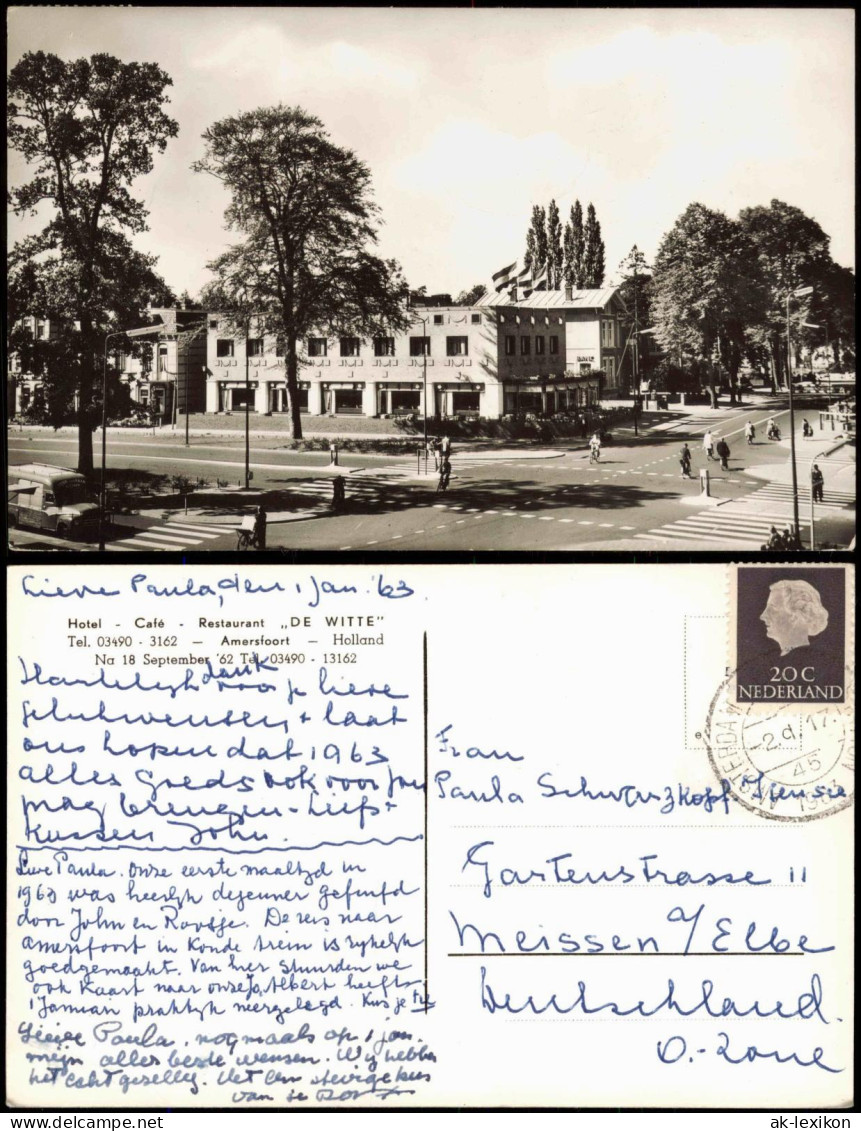 Lieve Paula, den 1 Jan. '63.
Hotel - Café - Restaurant „DE WITTE”
Tel. 03490 - 3162 — Amersfoort — Holland
Na 18 September '62 Tel. 03490 - 13162
Hartelijk dank voor je lieve
gelukwensen, + laat
ons hopen dat 1963
alles goeds ook voor jou
mag brengen - Liefs +
kussen John.
Lieve Paula. Onze eerste maaltijd in
1963 was heerlijk dejeuner
door John en Roosje. De reis naar
Amersfoort in koude trein is rijkelijk
goedgemaakt. Van hier stuurden we
ook kaart naar onze Albert
1 Januari praktijk neergelegd. Kus je
Lieve Paula, nogmaals op 1 jan.
mijn aller beste wensen. Wij hebben
het echt gezellig. Met een stevige kus
van je
20 C
NEDERLAND
AMSTERDAM
-2.d.17.
45
Frau
Paula Schwarzkopf
Gartenstrasse 11
Meissen a/Elbe
Deutschland.
O.-Zone
ak-lexikon
© ak-lexikon.de
ak-lexikon